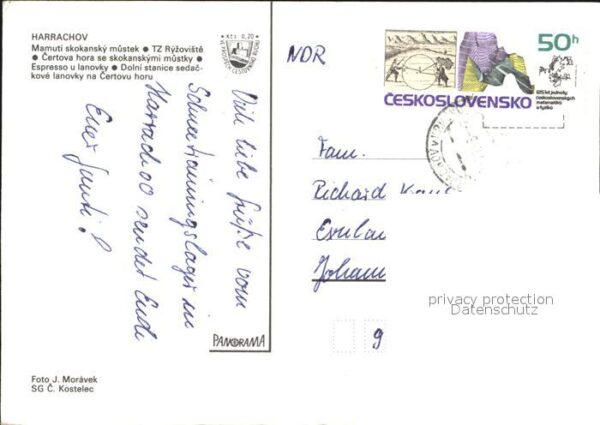 HARRACHOV
Mamutí skokanský můstek ● TZ Rýžoviště
● Čertova hora se skokanskými můstky ●
Espresso u lanovky ● Dolní stanice sedač-
kové lanovky na Čertovu horu
Kčs 0,20
Viele liebe Grüße vom
Schneetrainingslager in
Harrachov sendet Euch
Euer
PANORAMA
Foto J. Morávek
SG Č. Kostelec
NDR
50h
ČESKOSLOVENSKO
125 let jednoty
československých
matematiků
a fyziků
Fam.
Richard
Johann
9
privacy protection
Datenschutz